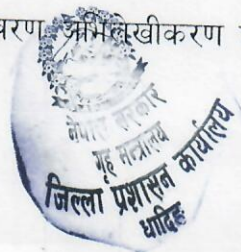 वरण अभिलेखीकरण
नेपाल सरकार
गृह मन्त्रालय
जिल्ला प्रशासन कार्यालय
धादिङ